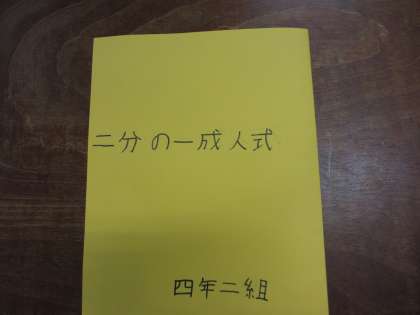 二分の一成人式
四年二組